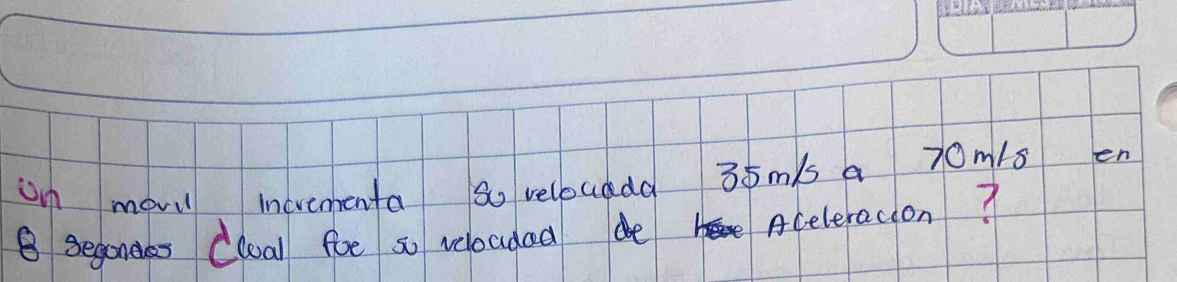 DIA
Un movil incrementa su velocidada 35 m/s a 70 m/s en
8 segundos ¿Cual fue su velocidad de Aceleracion?